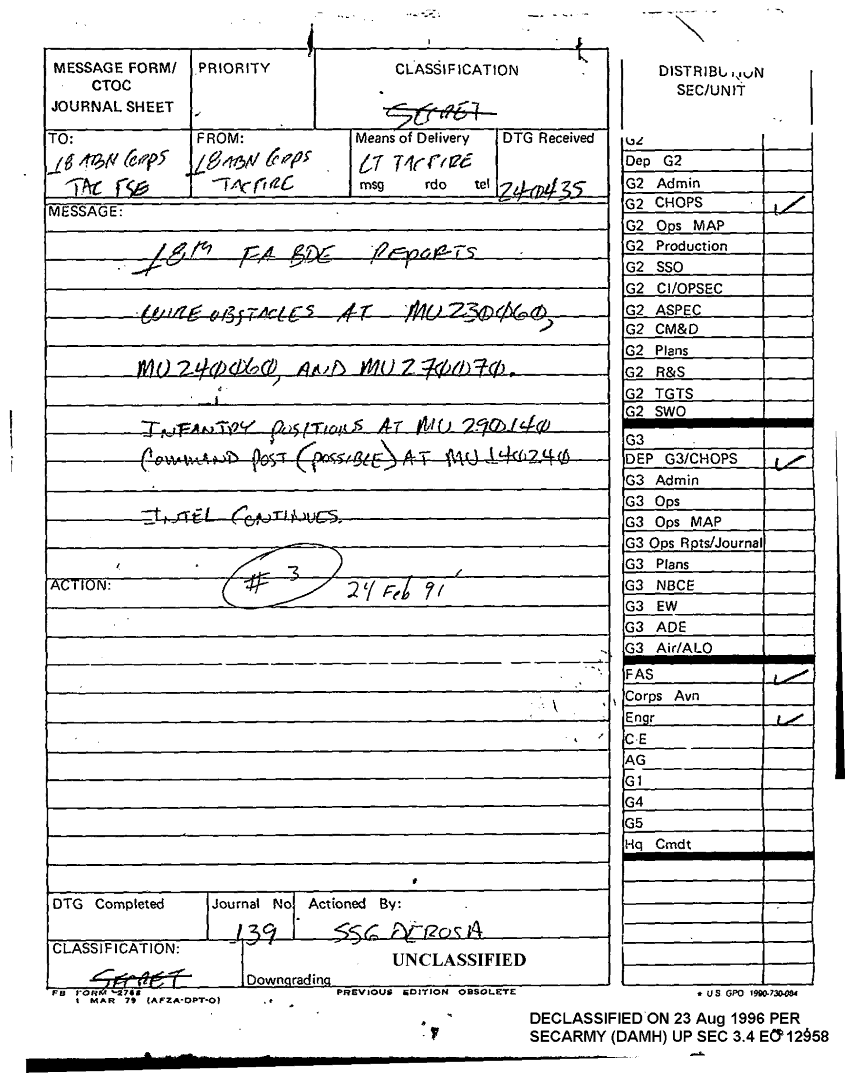 MESSAGE FORM/
CTOC
JOURNAL SHEET
PRIORITY
CLASSIFICATION
SECRET
TO:
18 ABN CORPS
TAC FSE
FROM:
18 ABN CORPS
TACFIRE
Means of Delivery
LT TACFIRE
msg rdo tel
DTG Received
240435
MESSAGE:
18TH FA BDE REPORTS
WIRE OBSTACLES AT MU230060,
MU240060, AND MU270070.
INFANTRY POSITIONS AT MU 290140
COMMAND POST (POSSIBLE) AT MU 140240
INTEL CONTINUES.
# 3
24 Feb 91
ACTION:
DTG Completed
Journal No
139
Actioned By:
SSG DEROSIA
CLASSIFICATION:
SECRET
UNCLASSIFIED
Downgrading
FB FORM 2768
1 MAR 79 (AFZA-DPT-O)
PREVIOUS EDITION OBSOLETE
DISTRIBUTION
SEC/UNIT
G2
Dep G2
G2 Admin
G2 CHOPS
G2 Ops MAP
G2 Production
G2 SSO
G2 CI/OPSEC
G2 ASPEC
G2 CM&D
G2 Plans
G2 R&S
G2 TGTS
G2 SWO
G3
DEP G3/CHOPS
G3 Admin
G3 Ops
G3 Ops MAP
G3 Ops Rpts/Journal
G3 Plans
G3 NBCE
G3 EW
G3 ADE
G3 Air/ALO
FAS
Corps Avn
Engr
C-E
AG
G1
G4
G5
Hq Cmdt
* U S GPO 1990-730-084
DECLASSIFIED ON 23 Aug 1996 PER
SECARMY (DAMH) UP SEC 3.4 EO 12958